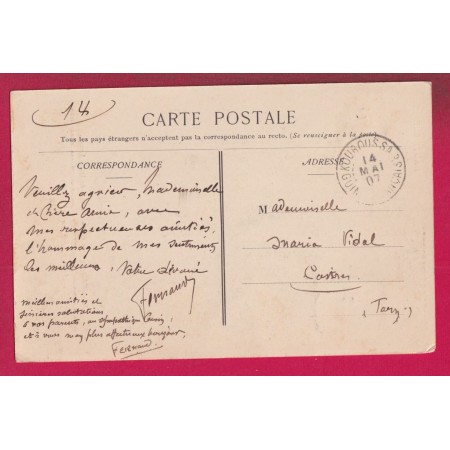 14
CARTE POSTALE
Tous les pays étrangers n'acceptent pas la correspondance au recto. (Se renseigner à la poste)
CORRESPONDANCE
ADRESSE
14
MAI
07
Veuillez agréer, Mademoiselle
et chère Amie, avec
mes respectueuses amitiés,
l'hommage de mes sentiments
les meilleurs, Votre dévoué
Fernand
Mademoiselle
Maria Vidal
Castres
(Tarn)
Meilleures amitiés et
sincères salutations
à vos parents, au sympathique
et à vous mon plus affectueux bonjour,
FERNAND.